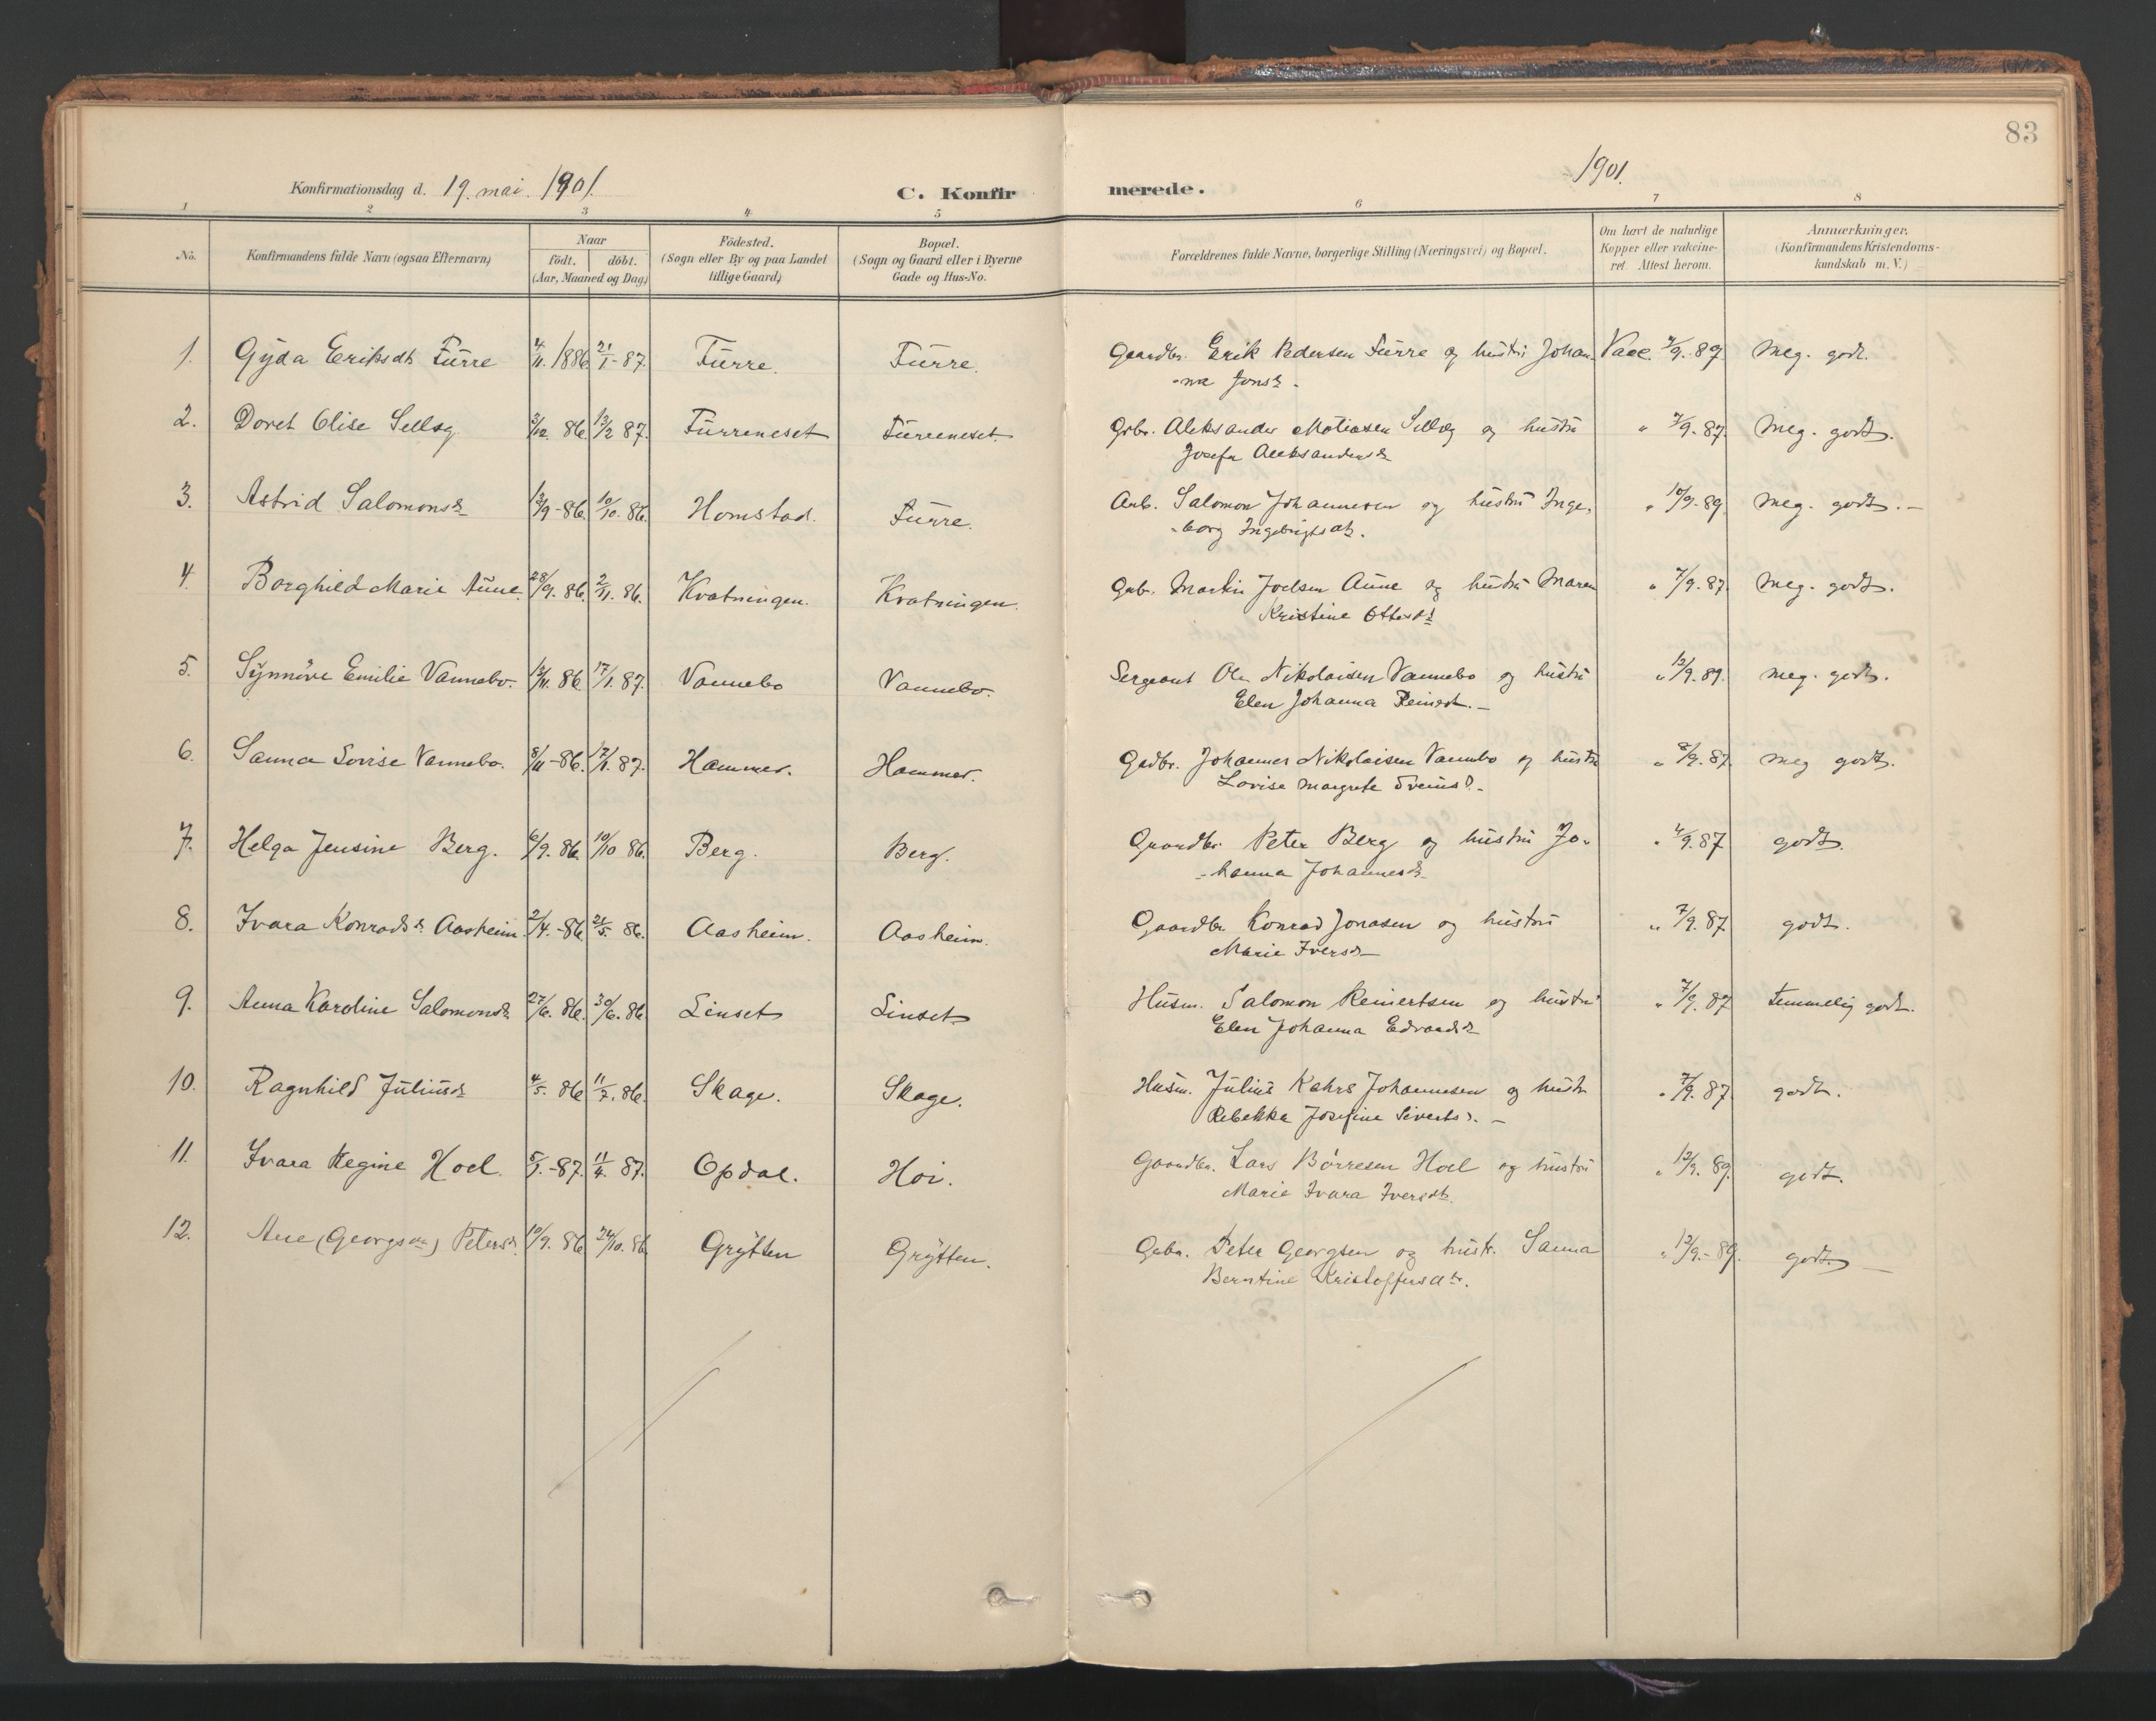 83
Konfirmationsdag d. 19. mai 1901.
C. Konfirmerede.
1901.
1 2 3 4 5 6 7 8
No.
Konfirmandens fulde Navn (ogsaa Efternavn)
Naar
født. døbt.
(Aar, Maaned og Dag)
Födested.
(Sogn eller By og paa Landet
tillige Gaard)
Bopæl.
(Sogn og Gaard eller i Byerne
Gade og Hus-No.
Forældrenes fulde Navne, borgerlige Stilling (Næringsvei) og Bopæl.
Om havt de naturlige
Kopper eller vakcine-
ret. Attest herom.
Anmærkninger.
(Konfirmandens Kristendoms-
kundskab m. V.)
1. Gyda Eriksdt Furre 4/11 1886 21/1-87. Furre. Furre. Gaardbr. Erik Pedersen Furre og hustru Johan- Vacc. 7/9.-89. Meg. godt.
-na Jonsd.
2. Doret Elise Sellæg 3/12 86. 13/2 87. Furreneset Furreneset Grbr. Aleksander Matiasen Sellæg og hustru " 7/9.-87. Meg. godt.
Josefa Aleksandersd
3. Astrid Salomonsd 13/9-86. 10/10.86. Homstad. Furre. Arb. Salomon Johannesen og hustru Inge- " 10/9-89. Meg. godt.-
-borg Ingebrigtsdt.
4. Borghild Marie Aune. 28/9.86. 2/11.86. Kvatningen. Kvatningen. Gbr. Martin Joelsen Aune og hustru Maren " 7/9.87. Meg. godt.
Kristine Ottersdt
5. Synnöve Emilie Vannebo. 12/11.86. 17/1.87. Vannebo Vannebo. Sergeant Ole Nikolaisen Vannebo og hustru " 12/9.89. meg. godt.
Elen Johanna Reinertd.-
6. Sanna Lovise Vannebo. 8/11-86. 17/1.87. Hammer. Hammer. Gadbr. Johannes Nikolaisen Vannebo og hustru " 8/9.87. meg godt.
Lovise Margrete Svensd.-
7. Helga Jensine Berg. 6/9.86. 10/10 86. Berg. Berg. Gaardbr. Peter Berg og hustru Jo- " 4/9.87 godt.
-hanna Johannesd.
8. Ivara Konradsd. Aasheim. 2/4.-86. 21/5.86. Aasheim. Aasheim. Gaardbr. Konrad Jonasen og hustru " 7/9.87 godt.
Marie Iversd-
9. Anna Karoline Salomonsd 27/6.86. 30/6.86. Linset Linset Husm. Salomon Reinertsen og hustru " 7/9.87 temmelig godt.
Elen Johanna Edvardsd
10. Ragnhild Juliusd 4/5.86 11/7.86. Skage. Skage. Husm. Julius Kahrs Johannesen og hustr " 7/9.87. godt.
Rebekka Josefine Sivertsd.-
11. Ivara Regine Hoel. 5/1.-87. 11/4.87. Opdal. Hoi. Gaardbr. Lars Börresen Hoel og hustru " 12/9.89. godt.
Marie Ivara Iversdt.
12. Ane (Georgsen) Petersd. 10/9.86. 24/10.86. Grytten Grytten. Gbr. Peter Georgsen og hustr. Sanna " 12/9.-89. godt.-
Berntine Kristoffersdtr.